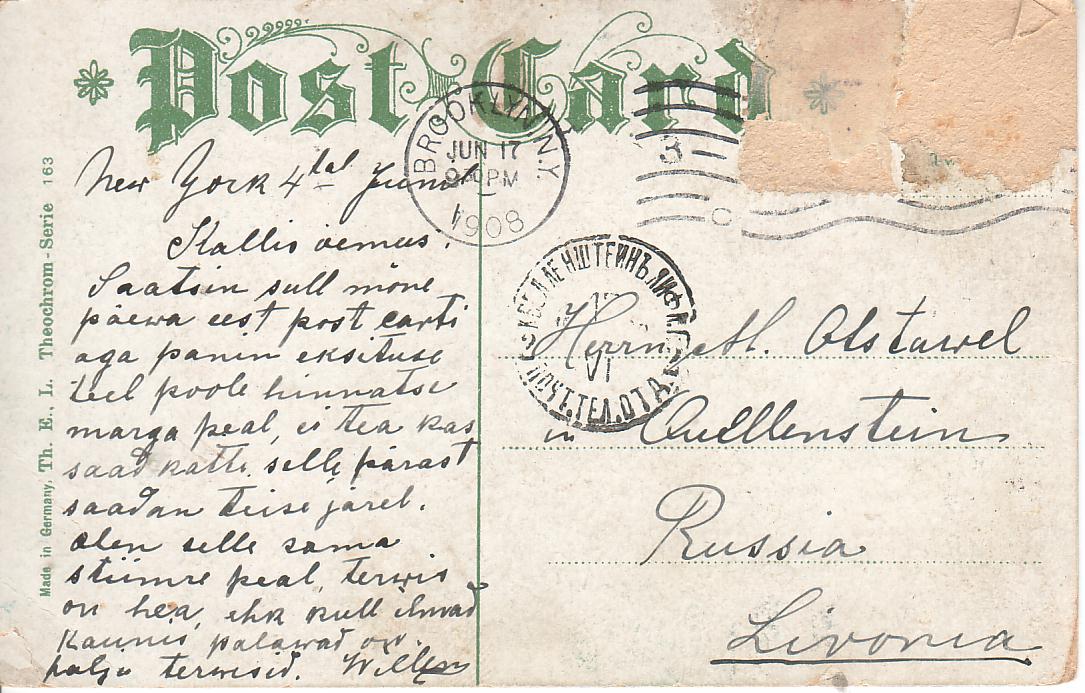 Post Card
New York 4tal Junil
Kallis öemus!
Saatsin sull mõne
päewa eest post carti
aga panin eksituse
teel poole hinnatse
marga peal, ei tea kas
saad katte, selle pärast
saadan teise järel.
olen selle sama
stiimre peal, terwis
on hea, ehk küll ilmad
kaunis palawad on.
palju terwisid. Willem
Made in Germany, Th. E., L. Theochrom-Serie 163
BROOKLYN N.Y.
JUN 17
PM
1908
3
C
КВЕЛЛЕНШТЕЙНЪ ЛИФЛ.Г.
VI
ПОЧТ.ТЕЛ.ОТД.
Herrn M. Otstawel
in Quellenstein
Russia
Livonia